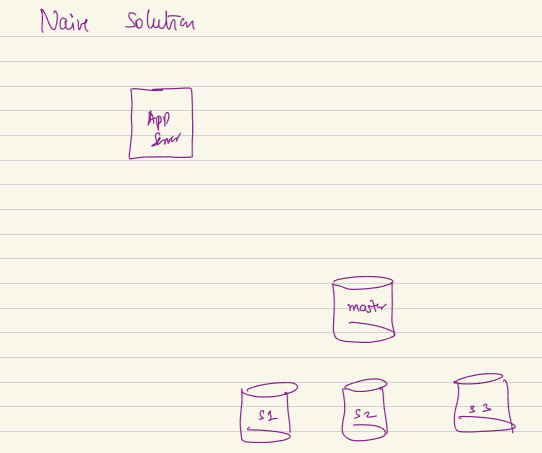 Naive Solution
App
Server
master
S1
S2
S3